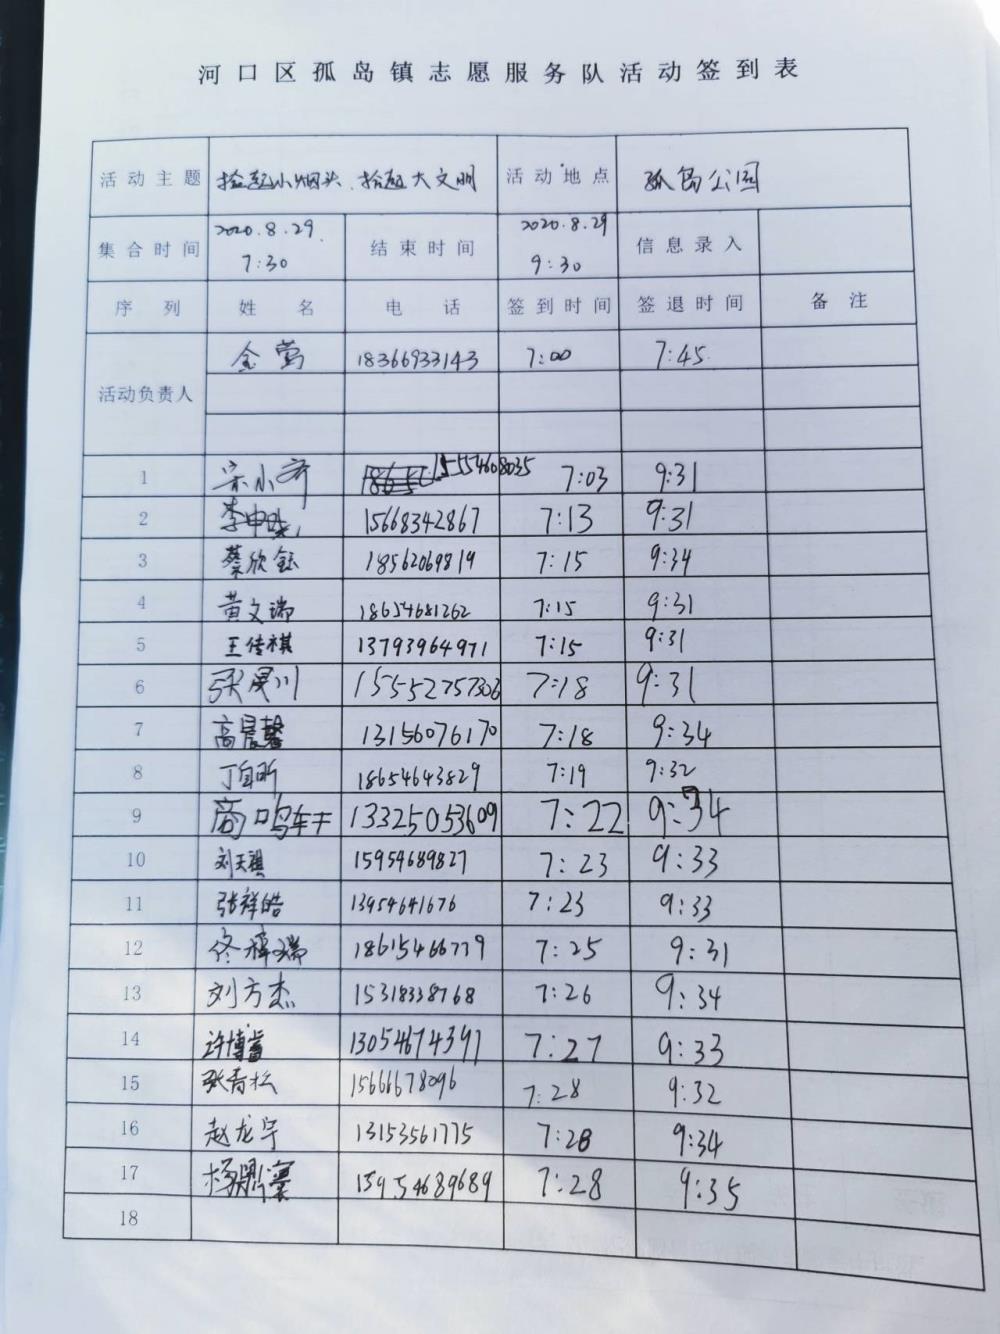 河口区孤岛镇志愿服务队活动签到表
活动主题 捡起小烟头、拾起大文明 活动地点 孤岛公园
集合时间 2020.8.29. 7:30 结束时间 2020.8.29 9:30 信息录入
序列 姓名 电话 签到时间 签退时间 备注
活动负责人 金莺 18366933143 7:00 7:45
1 宋小齐 15554608035 7:03 9:31
2 李申 15668342867 7:13 9:31
3 蔡欣钰 18562069819 7:15 9:34
4 黄文瑞 18654681262 7:15 9:31
5 王传祺 13793964971 7:15 9:31
6 张旻川 15552757306 7:18 9:31
7 高晨馨 13156076170 7:18 9:34
8 丁自昕 18654643829 7:19 9:32
9 商鸣轩 13325053609 7:22 9:34
10 刘天祺 15954689827 7:23 9:33
11 张祥皓 13954641676 7:23 9:33
12 佟 瑞 18615466779 7:25 9:31
13 刘方杰 15318338768 7:26 9:34
14 许博睿 13054674397 7:27 9:33
15 张青松 15666678096 7:28 9:32
16 赵龙宇 13153561775 7:28 9:34
17 杨鼎 15954689689 7:28 9:35
18